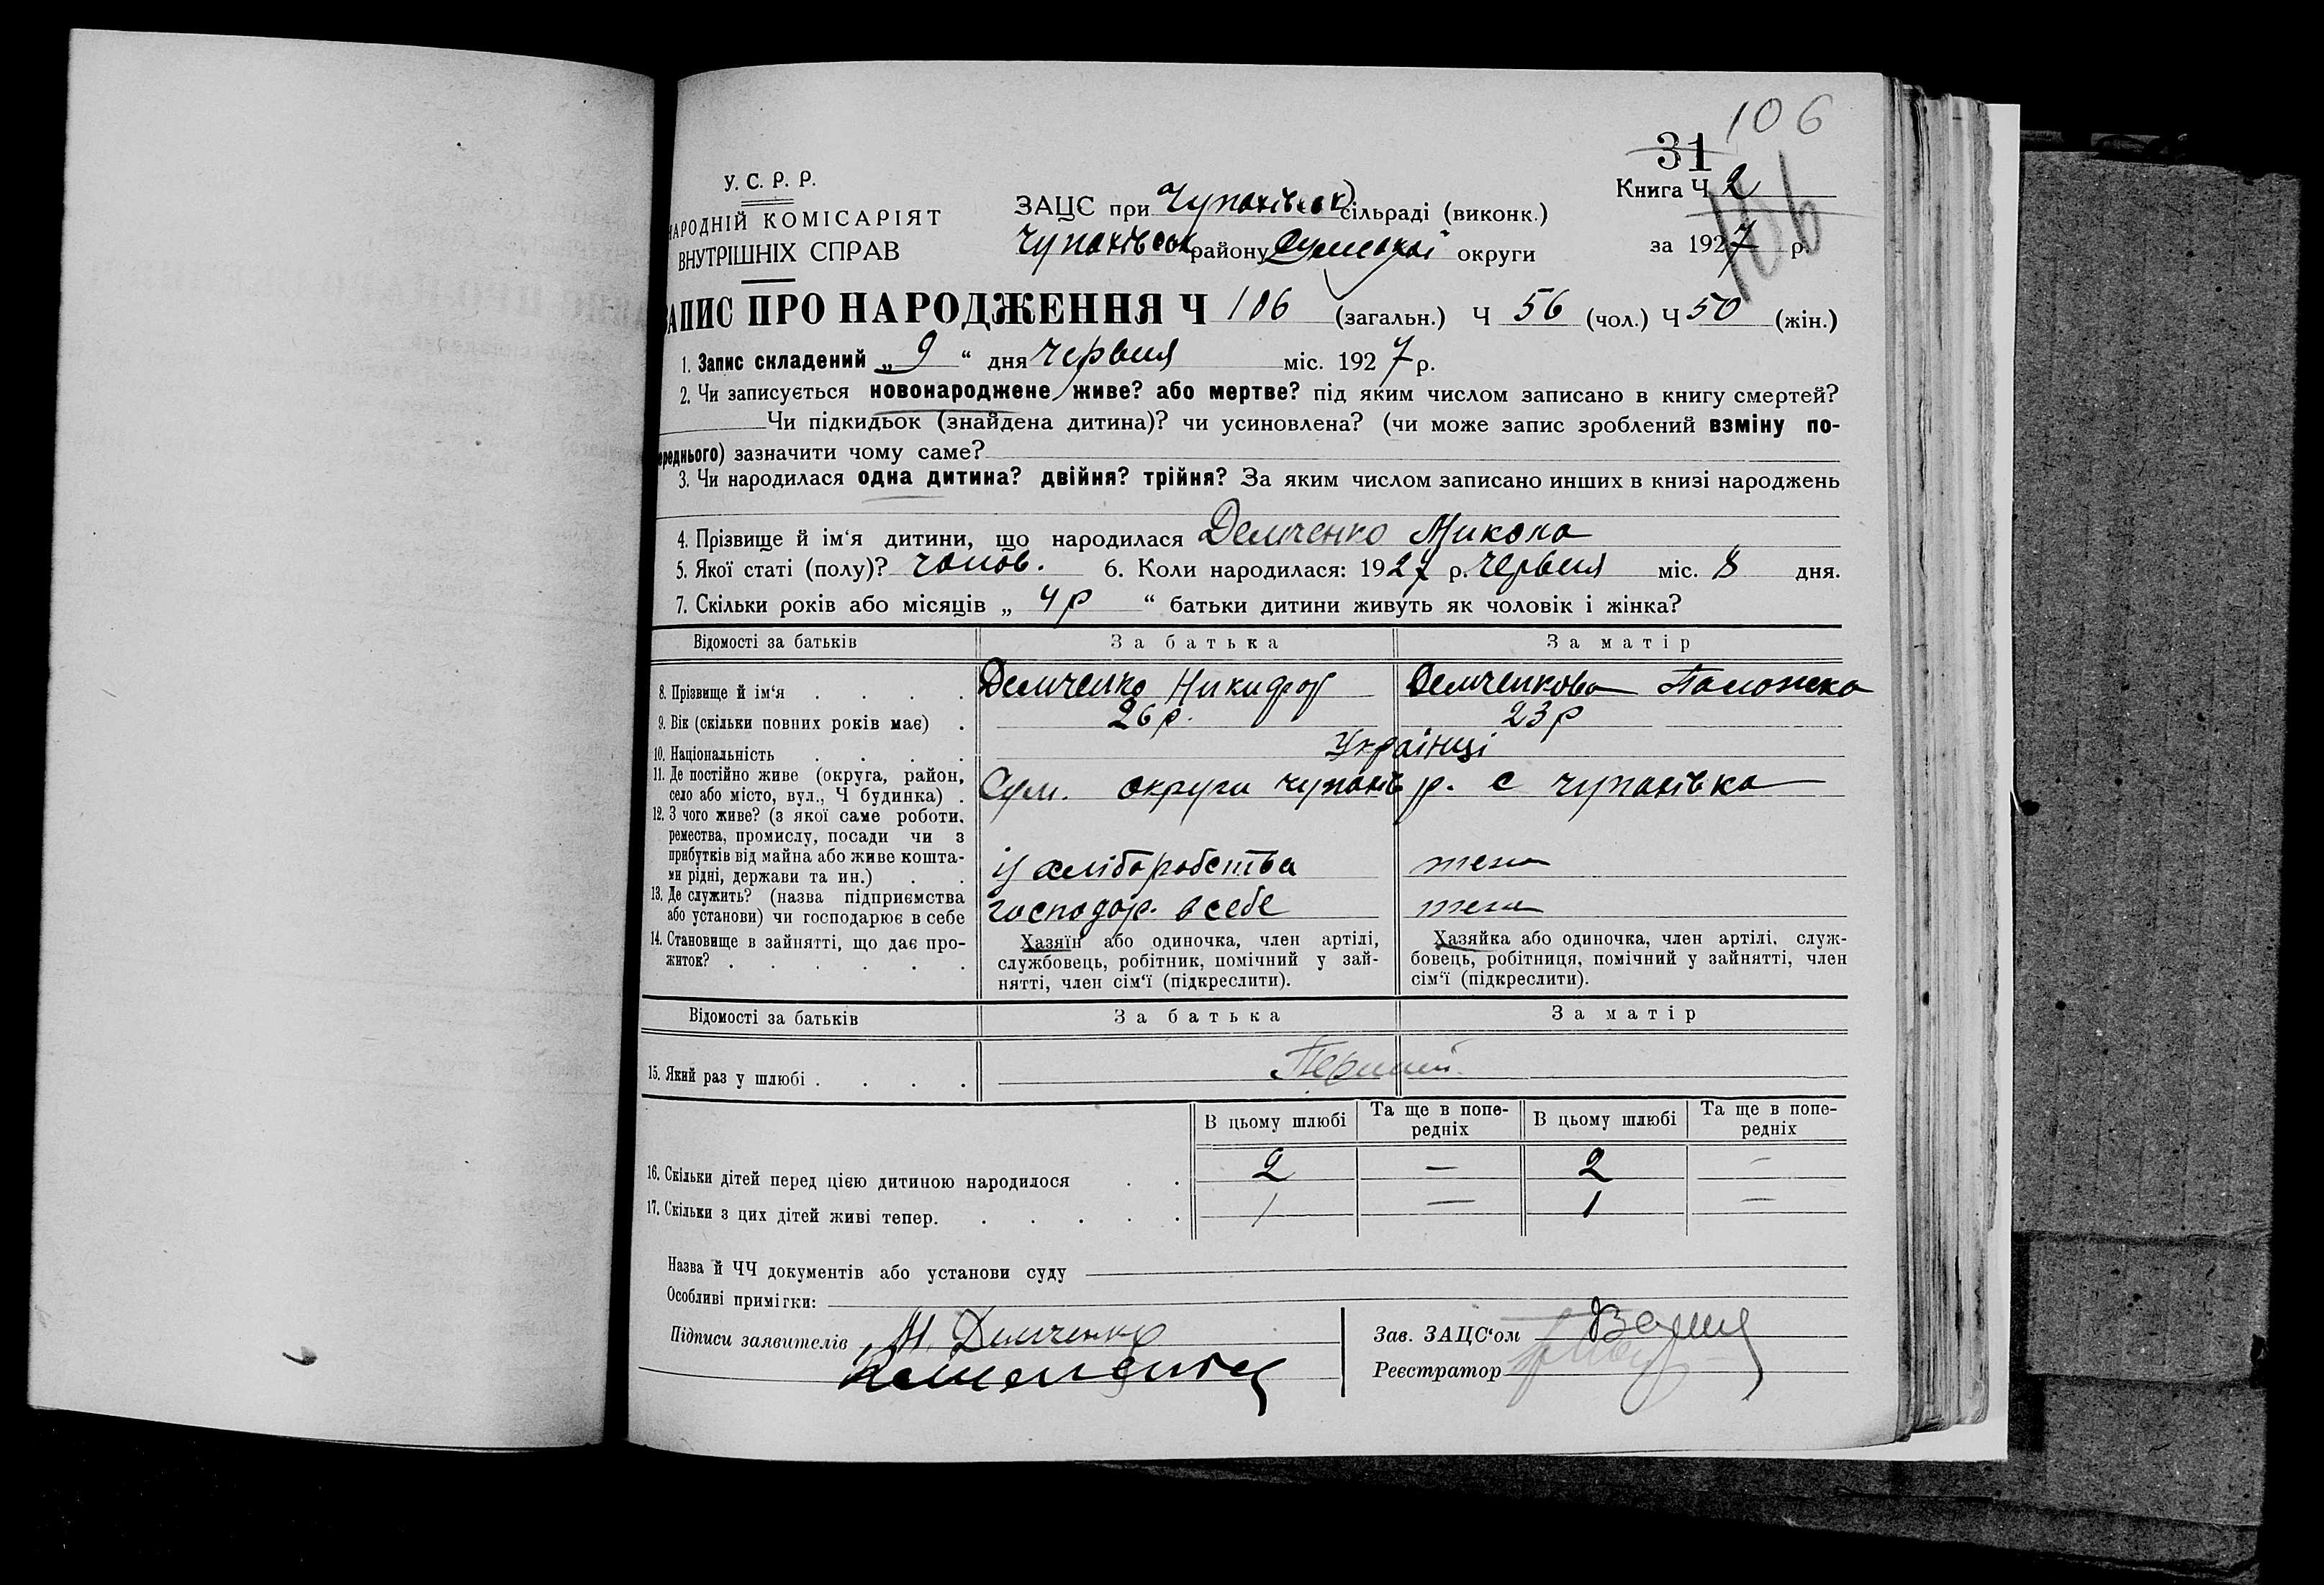 106
31
У. С. Р. Р.
Книга Ч 2
106
НАРОДНІЙ КОМІСАРІЯТ
ЗАЦС при Чупахівськ сільраді (виконк.)
ВНУТРІШНІХ СПРАВ
Чупахівськ району Сумської округи
за 1927 р.
ЗАПИС ПРО НАРОДЖЕННЯ Ч 106 (загальн.) Ч 56 (чол.) Ч 50 (жін.)
1. Запис складений „ 9 “ дня червня міс. 1927 р.
2. Чи записується новонароджене живе? або мертве? під яким числом записано в книгу смертей?
Чи підкидьок (знайдена дитина)? чи усиновлена? (чи може запис зроблений взміну по-
ереднього) зазначити чому саме?
3. Чи народилася одна дитина? двійня? трійня? За яким числом записано инших в книзі народжень
4. Прізвище й ім‘я дитини, що народилася Демченко Микола
5. Якої статі (полу)? чолов. 6. Коли народилася: 1927 р. червня міс. 8 дня.
7. Скільки років або місяців „ 4 р “ батьки дитини живуть як чоловік і жінка?
Відомості за батьків За батька За матір
8. Прізвище й ім‘я . . . . Демченко Никифор Демченкова Паложка
9. Вік (скільки повних років має) . 26 р. 23 р
10. Національність . . . . Українці
11. Де постійно живе (округа, район,
село або місто, вул., Ч будинка) . Сум. округи чупахів р. с чупахівка
12. З чого живе? (з якої саме роботи,
ремества, промислу, посади чи з
прибутків від майна або живе кошта-
ми рідні, держави та ин.) . . із хліборобства теж
13. Де служить? (назва підприємства
або установи) чи господарює в себе господар. в себе теж
14. Становище в зайнятті, що дає про-
житок? . . . . . .
Хазяїн або одиночка, член артілі,
службовець, робітник, помічний у зай-
нятті, член сім‘ї (підкреслити).
Хазяйка або одиночка, член артілі, служ-
бовець, робітниця, помічний у зайнятті, член
сім‘ї (підкреслити).
Відомості за батьків За батька За матір
15. Який раз у шлюбі . . . . Перший
В цьому шлюбі Та ще в попе-
редніх В цьому шлюбі Та ще в попе-
редніх
16. Скільки дітей перед цією дитиною народилося . . 2 — 2 —
17. Скільки з цих дітей живі тепер. . . . . . 1 — 1 —
Назва й ЧЧ документів або установи суду
Особливі примітки:
Підписи заявителів Н. Демченко
Зав. ЗАЦС‘ом
Реєстратор